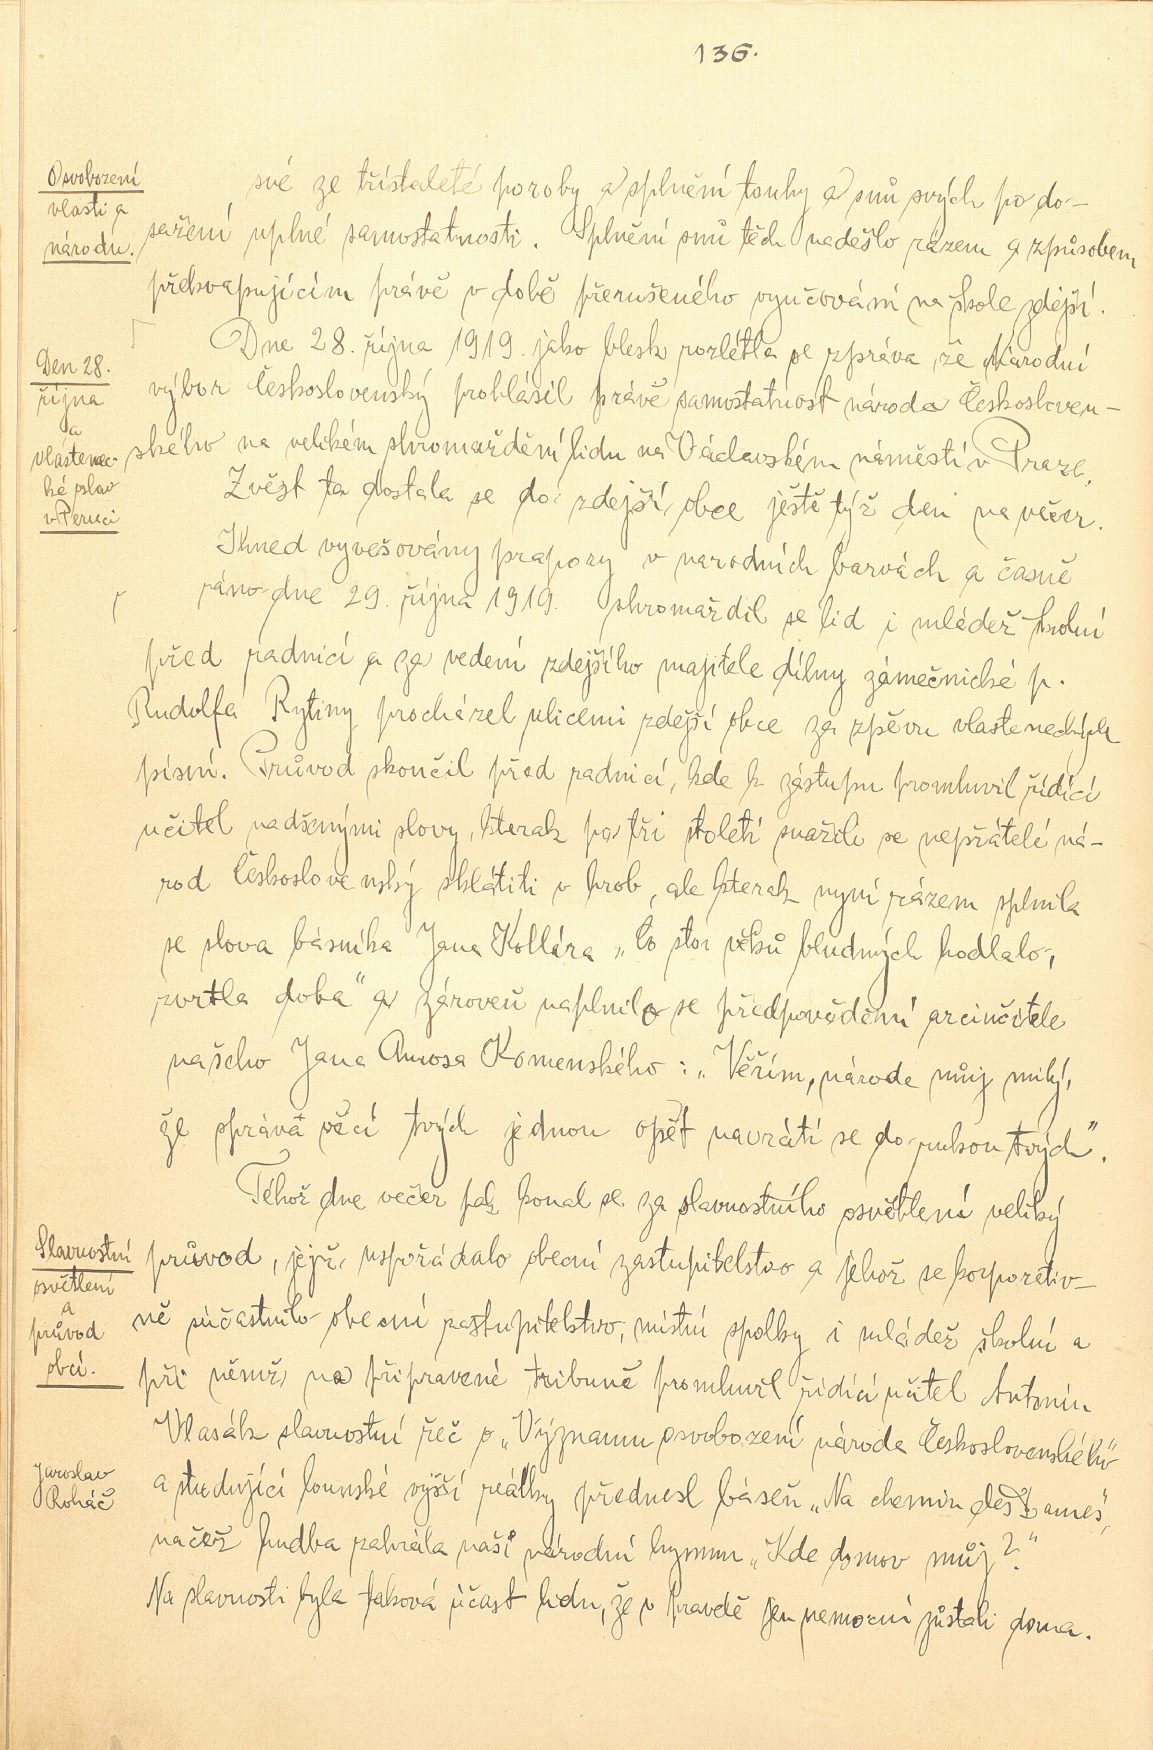 136.
Osvobození
vlasti a
národu.
své ze třístaleté poroby a splnění touhy a snů svých po do-
sažení uplné samostatnosti. Splnění snů těch nadešlo rázem a způsobem
překvapujícím právě v době přerušeného vyučování na škole zdejší.
Den 28.
října
a
vlastenec-
ké oslav
v Peruci
Dne 28. října 1919. jako blesk rozlétla se zpráva, že Národní
výbor Československý prohlásil právě samostatnost národa Českosloven-
ského na velikém shromaždění lidu na Václavském náměstí v Praze.
Zvěst ta dostala se do zdejší obce ještě týž den na večer.
Ihned vyvešovány prapory v narodních barvách a časně
ráno dne 29. října 1919. shromaždil se lid i mládež školní
před radnicí a za vedení zdejšího majitele dílny zámečnické p.
Rudolfa Rytiny procházel ulicemi zdejší obce za zpěvu vlasteneckých
písní. Průvod skončil před radnicí, kde k zástupu promluvil řídící
učitel nadšenými slovy, kterak po tři století snažili se nepřátelé ná-
rod Československý sklátiti v hrob, ale kterak nyní rázem splnila
se slova básníka Jana Kollára „Co sto věků bludných hodlalo,
zvrtla doba" a zároveň naplnilo se předpovědění arciučitele
našeho Jana Amosa Komenského: „Věřím, národe můj milý,
že správa věcí tvých jednou opět navrátí se do rukou tvých".
Téhož dne večer pak konal se za slavnostního osvětlení veliký
Slavnostní
osvětlení
a
průvod
obcí.
průvod, jejž uspořádalo obecní zastupitelstvo a jehož se korporativ-
ně súčastnilo obecní zastupitelstvo, místní spolky i mládež školní a
při němž na připravené tribuně promluvil řídící učitel Antonín
Vlasák slavnostní řeč o „Významu osvobození národa Československého"
Jaroslav
Roháč
a studující lounské vyšší reálky přednesl báseň „Na chemin des Dames",
načež hudba zahrála naši národní hymnu „Kde domov můj?."
Na slavnosti byla taková účast lidu, že v pravdě jen nemocní zůstali doma.